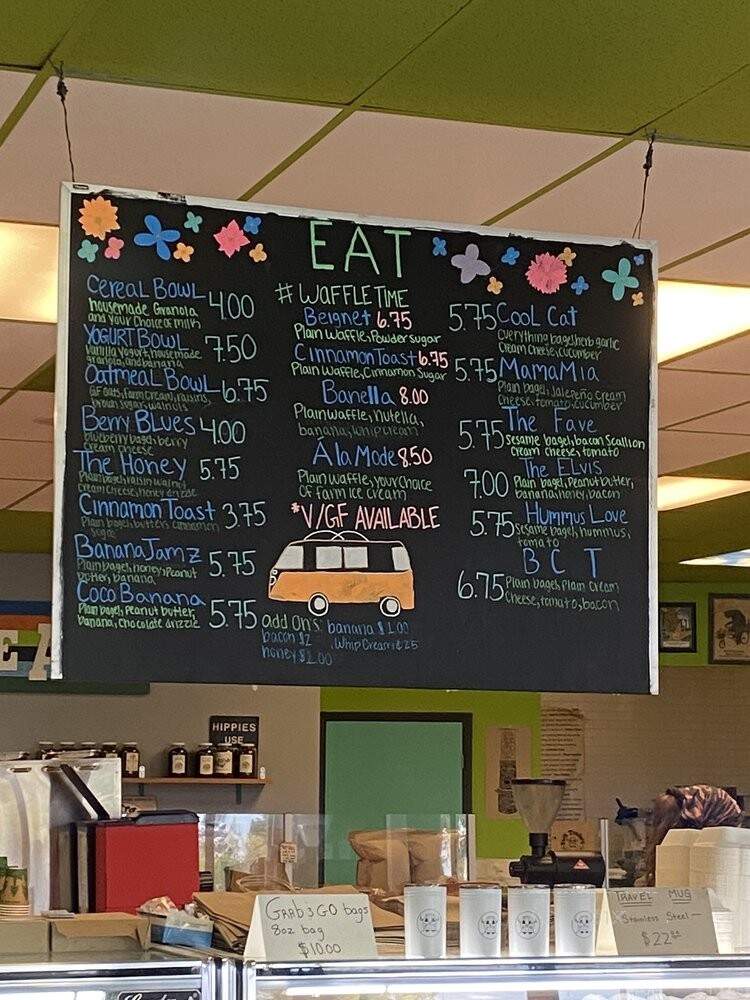 EAT
CereaL BowL 4.00
housemade Granola
and your choice of milk
YOGURT BOWL 7.50
Vanilla yogurt, housemade
granola, and banana
Oatmeal Bowl 6.75
GF oats, Farm Cream, raisins,
brown sugar, walnuts
Berry BLues 4.00
blueberry bagel, berry
cream cheese
The Honey 5.75
Plain bagel, raisin walnut
cream cheese, honey drizzle
Cinnamon Toast 3.75
Plain bagel, butter, cinnamon
sugar
Banana Jamz 5.75
Plain bagel, honey, Peanut
butter, banana
Coco Banana 5.75
Plain bagel, peanut butter,
banana, chocolate drizzle
# WAFFLE TIME
Beignet 6.75
Plain Waffle, Powder sugar
Cinnamon Toast 6.75
Plain Waffle, Cinnamon Sugar
Banella 8.00
Plain waffle, nutella,
banana, whip cream
Ála Mode 8.50
Plain waffle, your Choice
Of farm ice cream
*V/GF AVAILABLE
add ons: banana $1.00
bacon $2 , Whip Cream ¢25
honey $1.00
5.75 Cool Cat
Everything bagel, herb garlic
Cream Cheese, cucumber
5.75 MamaMia
Plain bagel, Jalapeño Cream
Cheese, tomato, cucumber
5.75 The Fave
Sesame bagel, bacon Scallion
Cream Cheese, tomato
7.00 The ELvis
Plain bagel, Peanut butter,
banana, honey, bacon
5.75 Hummus Love
Sesame bagel, hummus,
tomato
B C T
6.75 Plain bagel, Plain Cream
Cheese, tomato, bacon
EA
HIPPIES
USE
Grab & GO bags
8oz bag
$10.00
TRAVEL MUG
Stainless Steel —
$22.00